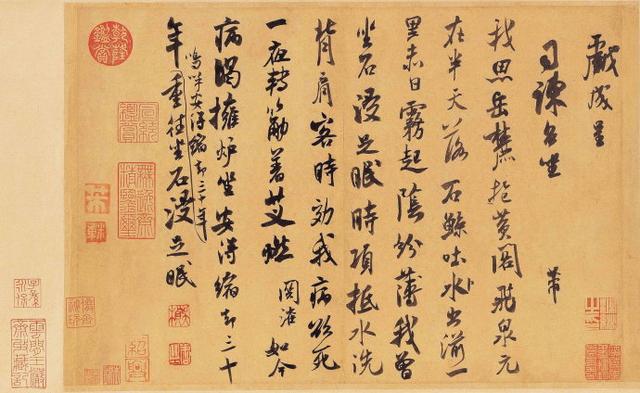 戲成呈
司諫台坐
芾
我思岳麓抱黃閣飛泉元
在半天落石鯨吐水出湔一
里赤日霧起陰紛薄我曾
坐石浸足眠時項抵水洗
背肩客時效我病欲死
一夜轉筋著艾燃
如今
病渴擁爐坐安得縮却三十
嗚呼安得縮却三十年
年重往坐石浸足眠
乾隆鑑賞
紹興